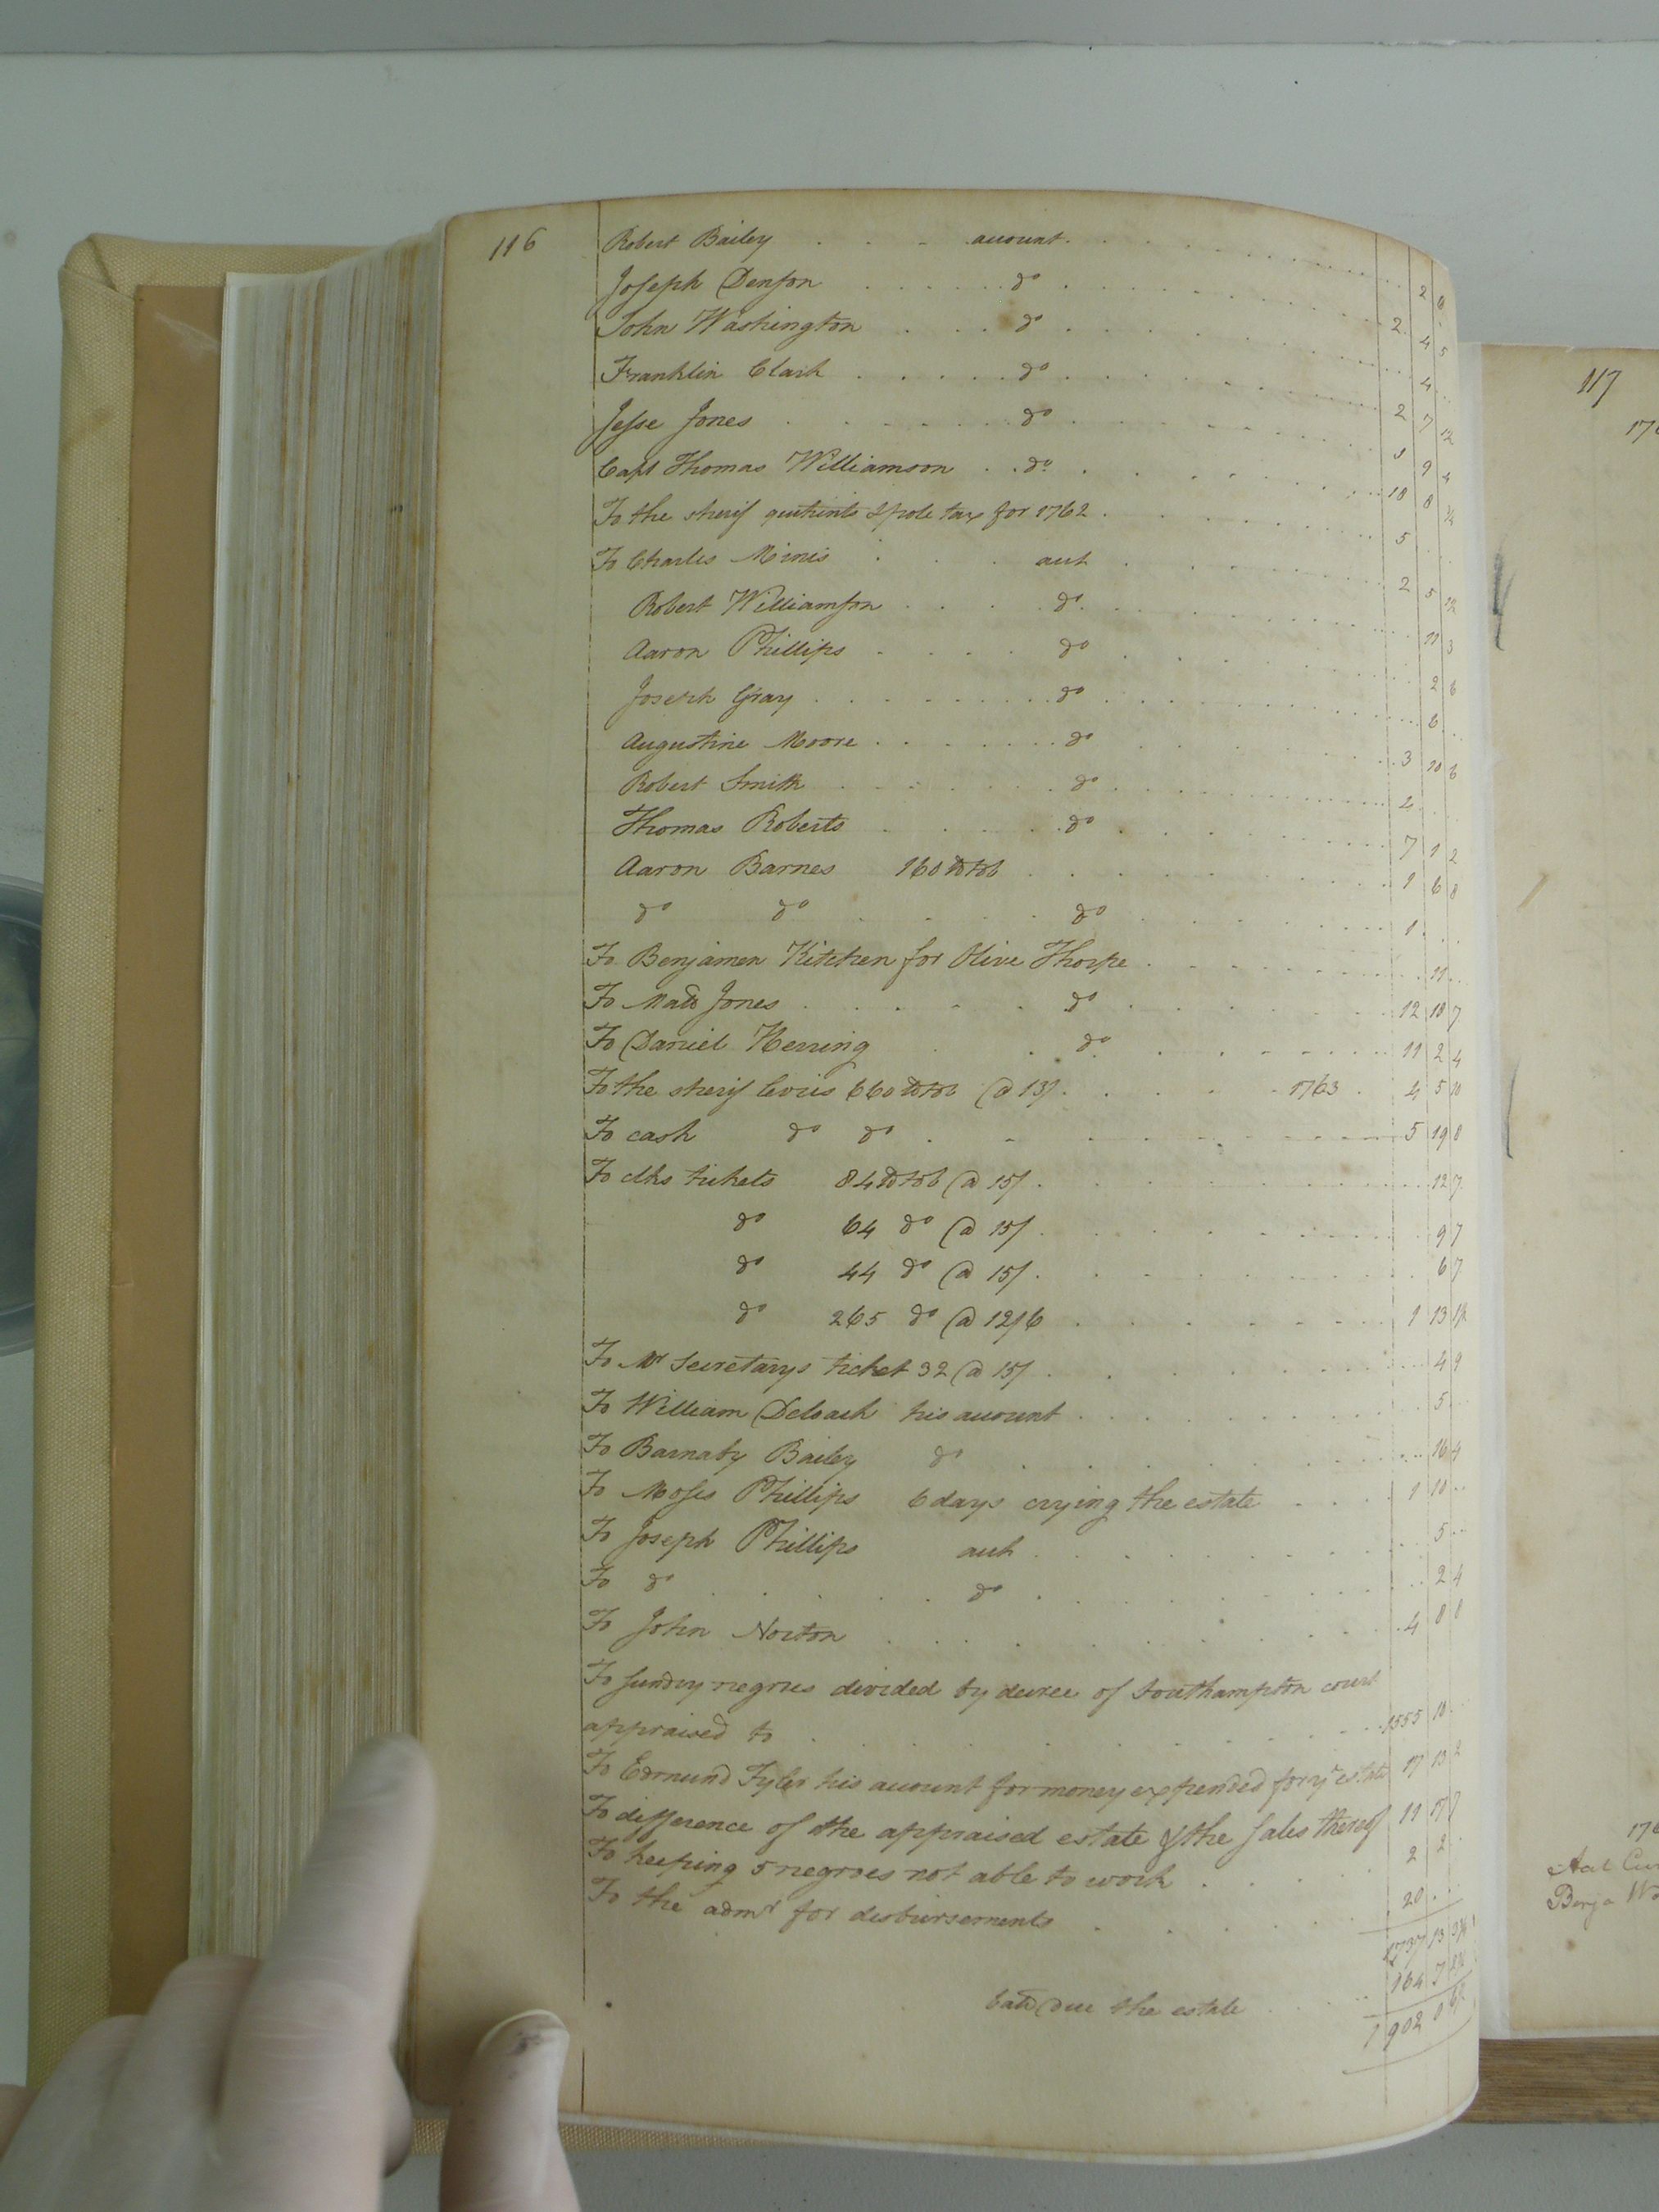 116
Robert Bailey . . . account . . . 2 6
Joseph Denson . . . do . . . 2 4 5
John Washington . . . do . . . 4
Franklin Clark . . . do . . . 2 7 1/2
Jesse Jones . . . do . . . 1 9 4
Capt Thomas Williamson . . do . . . 10 8 1/4
To the sherif quitrints & pole tax for 1762 . . . 5
To Charles Mimis . . . acct . . . 2 5 1/2
Robert Williamson . . . do . . . 11 3
Aaron Phillips . . . do . . . 2 6
Joseph Gray . . . do . . . 6
Augustine Moore . . . do . . . 3 10 6
Robert Smith . . . do . . . 2
Thomas Roberts . . . do . . . 7 1 2
Aaron Barnes 160 lb tob . . . 1 6 8
do do . . . do . . . 1
To Benjamen Kitchen for Olive Thorpe . . . 11
To Matt Jones . . . do . . . 12 18 7
To Daniel Herring . . . do . . . 11 2 4
To the sherif levies 660 lb tob @ 13/ . . . 1763 . 4 5 10
To cash do do . . . 5 19 8
To clks tickets 84 lb tob @ 15/ . . . 12 7
do 64 do @ 15/ . . . 9 7
do 44 do @ 15/ . . . 6 7
do 265 do @ 12/6 . . . 1 13 1 1/2
To Mr Secretarys ticket 32 @ 15/ . . . 4 9
To William Deloach his account . . . 5
To Barnaby Bailey do . . . 16 4
To Moses Phillips 6 days crying the estate . . . 1 10
To Joseph Phillips acct . . . 5
To do . . . do . . . 2 4
To John Norton . . . 4 8 8
To sundry negroes divided by decree of Southampton court
appraised to . . . 1555 10
To Edmund Tyler his account for money expended for ye estate 17 13 2
To difference of the appraised estate & the sales thereof 11 17 7
To keeping 5 negroes not able to work . . . 2 2
To the admr for disbursements . . . 20
1737 13 3 3/4
ball due the estate . . . 164 7
1902 0
117
176
176
Aal Cur
Benja Wa